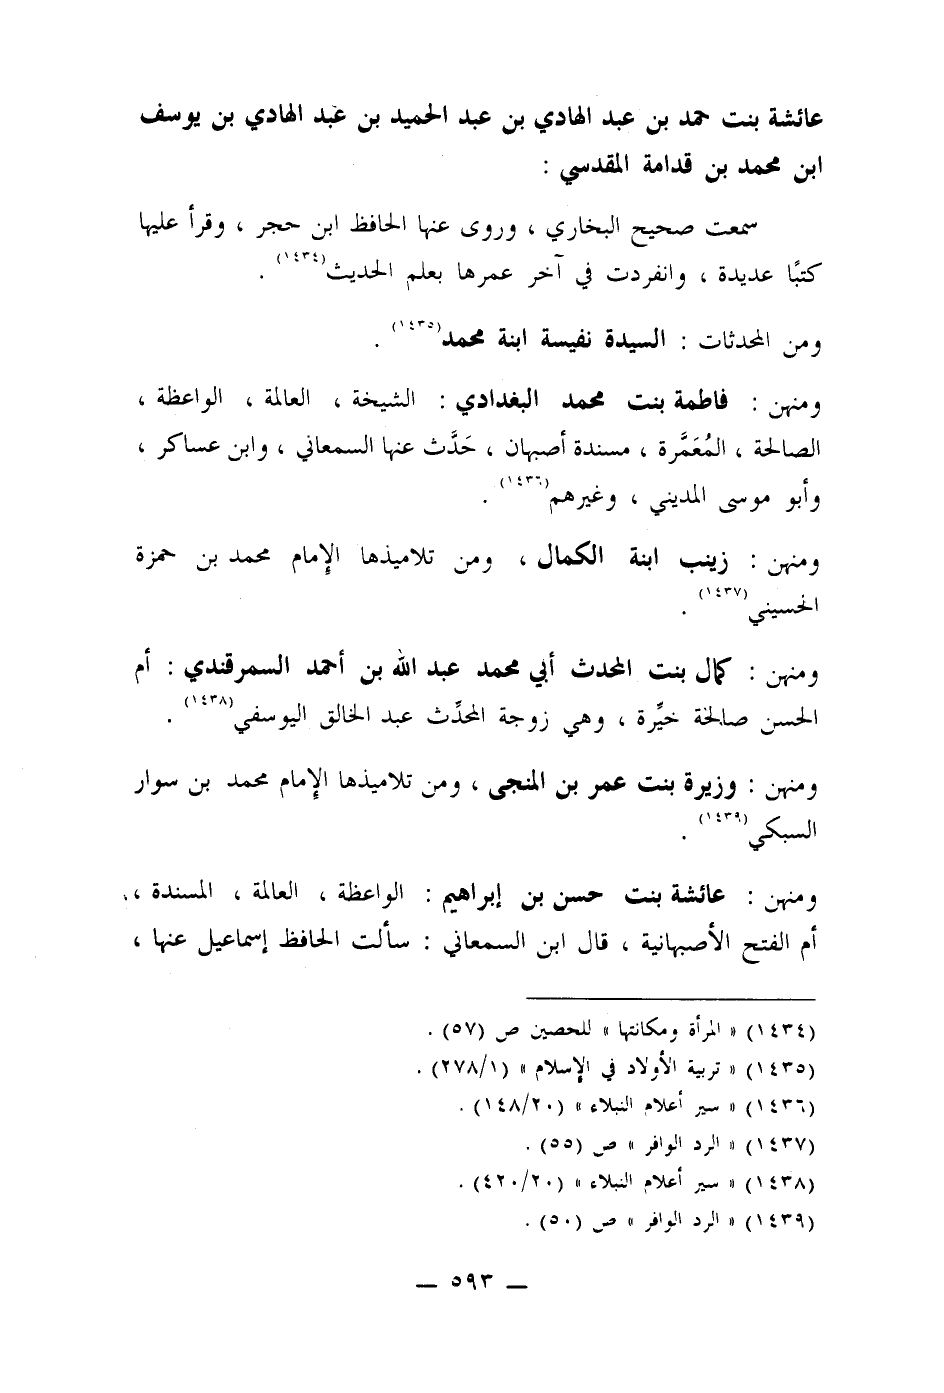 عائشة بنت حمد بن عبد الهادي بن عبد الحميد بن عبد الهادي بن يوسف
ابن محمد بن قدامة المقدسي :
سمعت صحيح البخاري ، وروى عنها الحافظ ابن حجر ، وقرأ عليها
كتبًا عديدة ، وانفردت في آخر عمرها بعلم الحديث(١٤٣٤) .
ومن المحدثات : السيدة نفيسة ابنة محمد(١٤٣٥) .
ومنهن : فاطمة بنت محمد البغدادي : الشيخة ، العالمة ، الواعظة ،
الصالحة ، المُعَمَّرة ، مسندة أصبهان ، حَدَّث عنها السمعاني ، وابن عساكر ،
وأبو موسى المديني ، وغيرهم(١٤٣٦) .
ومنهن : زينب ابنة الكمال ، ومن تلاميذها الإمام محمد بن حمزة
الحسيني(١٤٣٧) .
ومنهن : كمال بنت المحدث أبي محمد عبد الله بن أحمد السمرقندي : أم
الحسن صالحة خيِّرة ، وهي زوجة المحدِّث عبد الخالق اليوسفي(١٤٣٨) .
ومنهن : وزيرة بنت عمر بن المنجى ، ومن تلاميذها الإمام محمد بن سوار
السبكي(١٤٣٩) .
ومنهن : عائشة بنت حسن بن إبراهيم : الواعظة ، العالمة ، المسندة ،
أم الفتح الأصبهانية ، قال ابن السمعاني : سألت الحافظ إسماعيل عنها ،
(١٤٣٤) « المرأة ومكانتها » للحصين ص (٥٧) .
(١٤٣٥) « تربية الأولاد في الإسلام » (٢٧٨/١) .
(١٤٣٦) « سير أعلام النبلاء » (١٤٨/٢٠) .
(١٤٣٧) « الرد الوافر » ص (٥٥) .
(١٤٣٨) « سير أعلام النبلاء » (٤٢٠/٢٠) .
(١٤٣٩) « الرد الوافر » ص (٥٠) .
— ٥٩٣ —